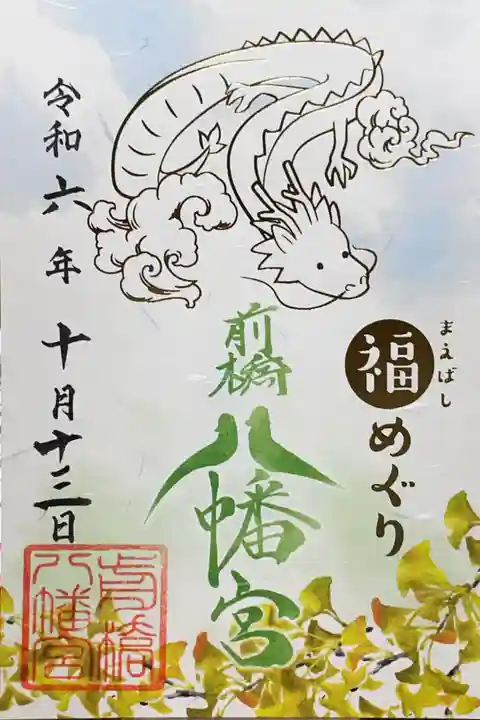 まえばし
福めぐり
前橋
八幡宮
令和六年十月十三日
前橋八幡宮